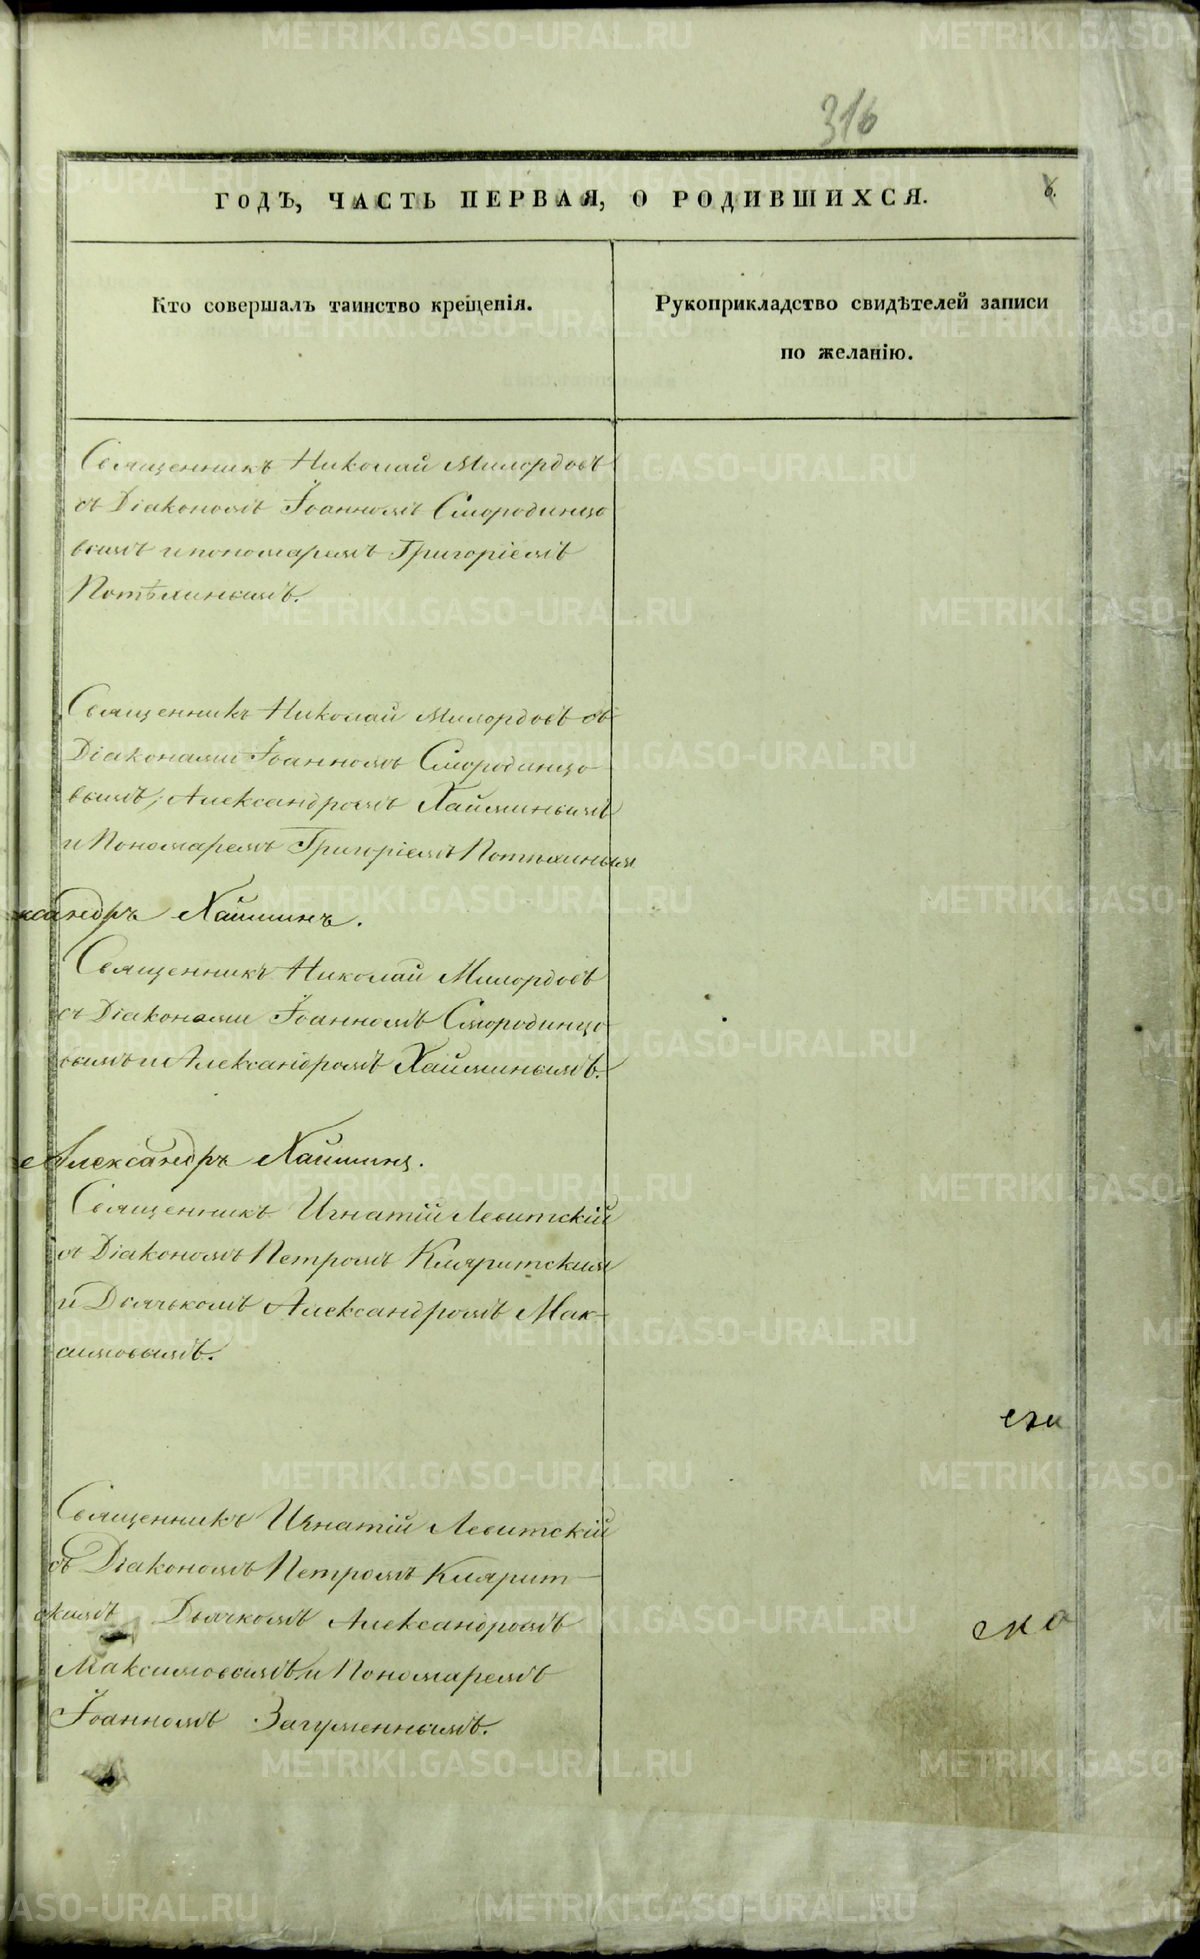 316
ГОДЪ, ЧАСТЬ ПЕРВАЯ, О РОДИВШИХСЯ.
6.
Кто совершалъ таинство крещенія.
Рукоприкладство свидѣтелей записи
по желанію.
Священникъ Николай Милордовъ
съ Діакономъ Іоанномъ Смородинцо
вымъ и пономаремъ Григоріемъ
Потѣхинымъ.
Священникъ Николай Милордовъ съ
Діаконами Іоанномъ Смородинцо
вымъ, Александромъ Хайминымъ
и Пономаремъ Григоріемъ Потѣхиным
ксандръ Хайминъ.
Священникъ Николай Милордовъ
съ Діаконами Іоанномъ Смородинцо
вымъ и Александромъ Хайминымъ.
Александръ Хайминъ.
Священникъ Игнатій Левитскій
съ Діакономъ Петромъ Кляритским
и Дьячькомъ Александромъ Мак-
симовымъ.
Священникъ Игнатій Левитскій
съ Діакономъ Петромъ Клярит
скимъ Дьячкомъ Александромъ
Максимовымъ и Пономаремъ
Іоанномъ Загуменнымъ.
METRIKI.GASO-URAL.RU